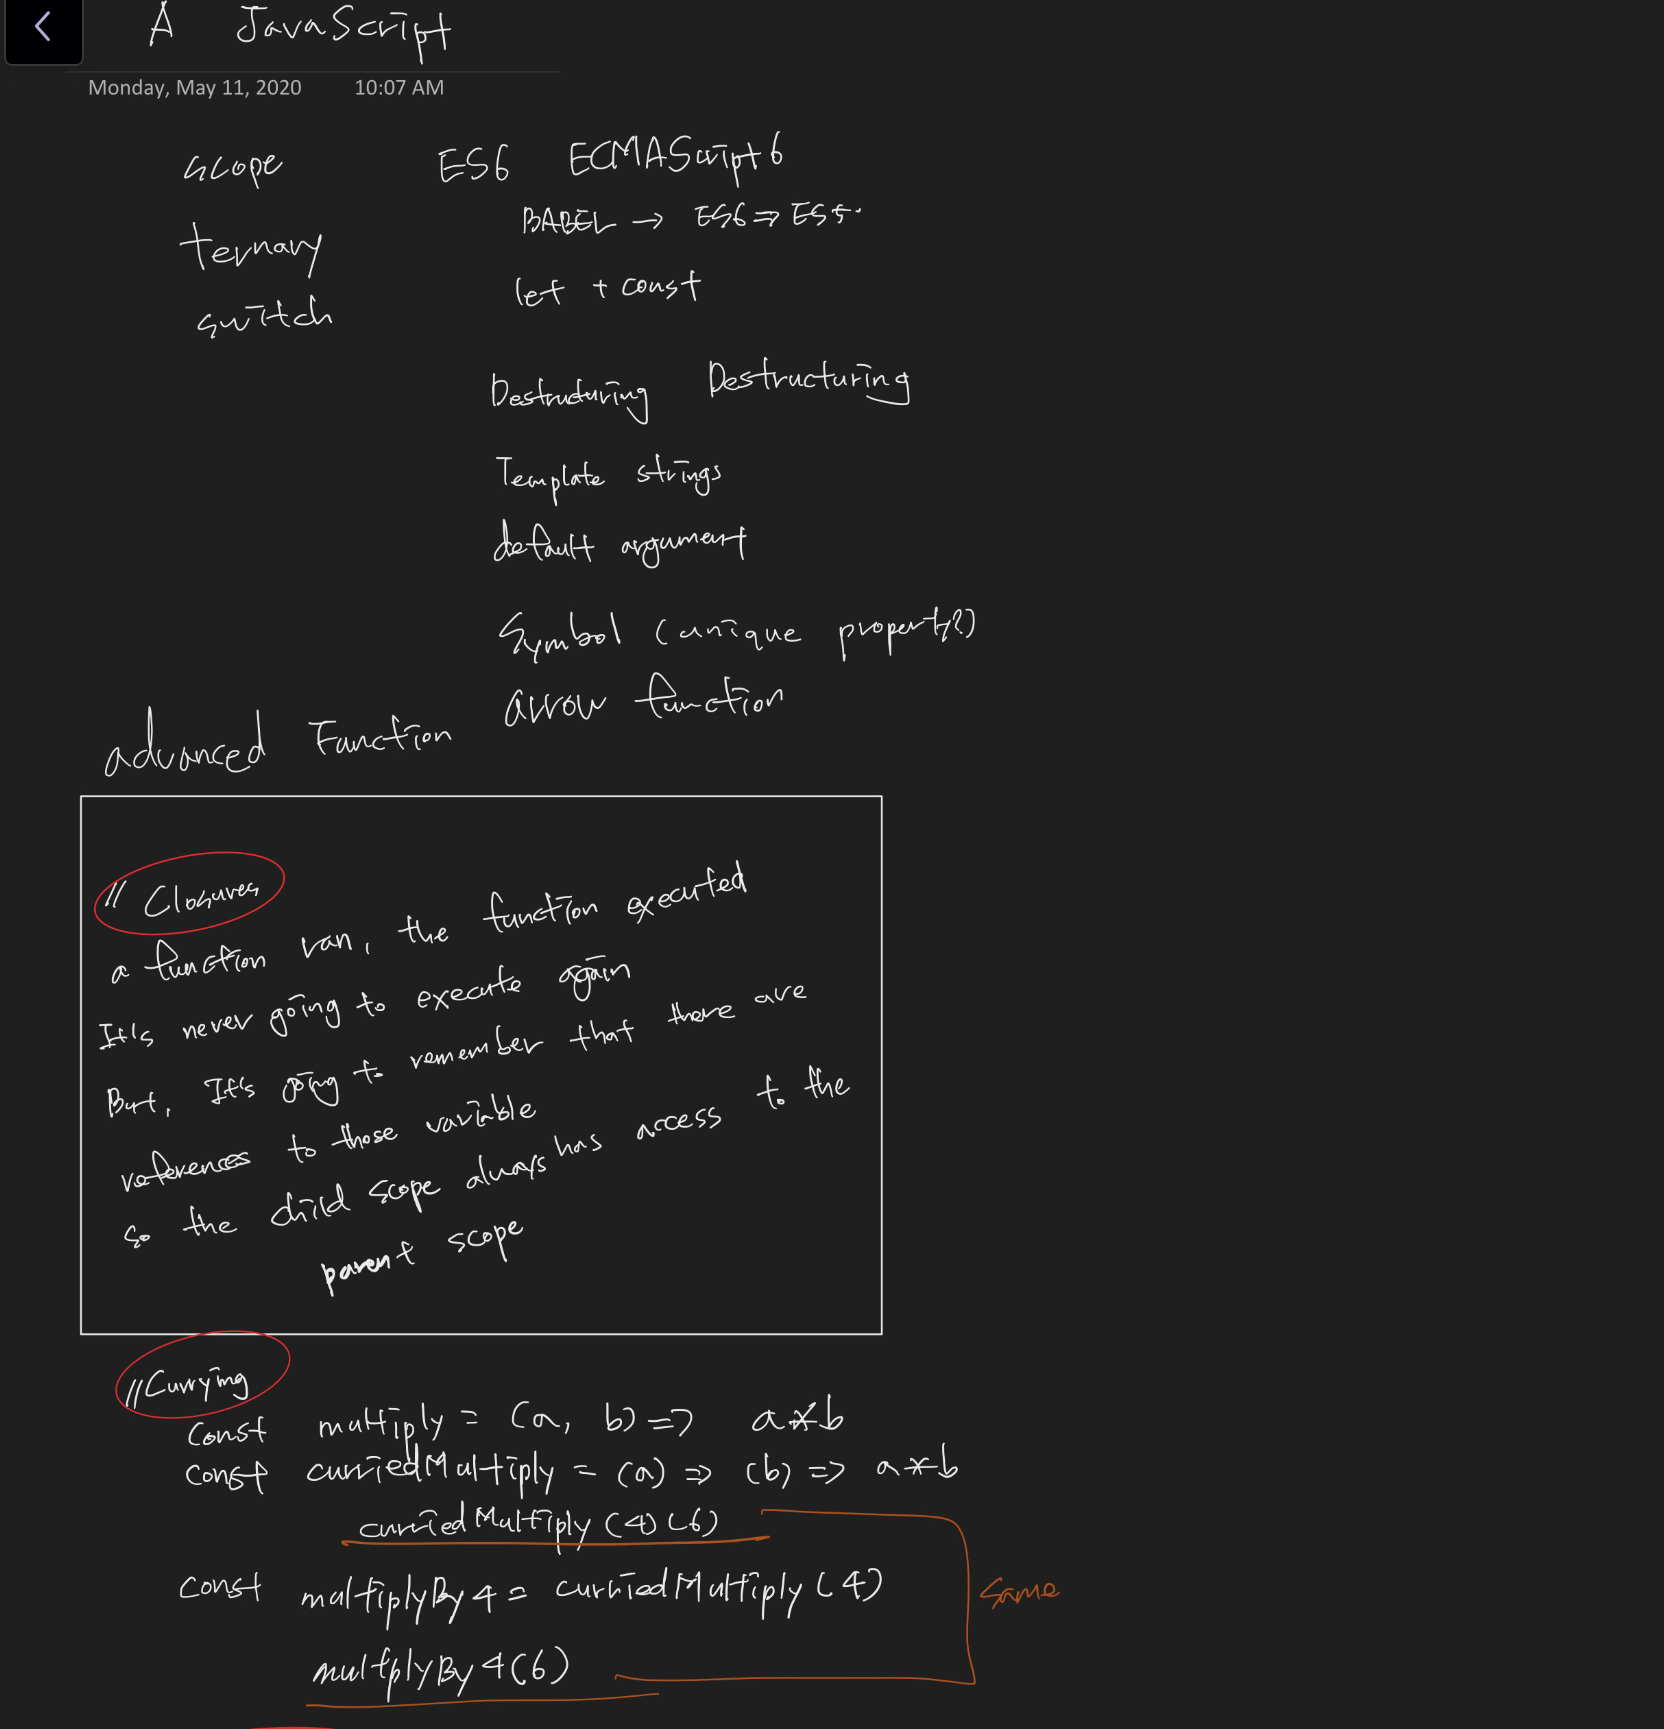 A JavaScript
Monday, May 11, 2020 10:07 AM
scope
ternary
switch
ES6 ECMAScript6
BABEL → ES6 ⇒ ES5.
let + const
Destructuring Destructuring
Template strings
default argument
Symbol (unique property?)
arrow function
advanced Function
// Closures
a function ran, the function executed
It's never going to execute again
But, It's going to remember that there are
references to those variable
so the child scope always has access to the
parent scope
//Currying
const multiply = (a, b) => a*b
const curriedMultiply = (a) => (b) => a*b
curriedMultiply (4) (6)
const multiplyBy4 = curriedMultiply (4)
multplyBy4(6)
same